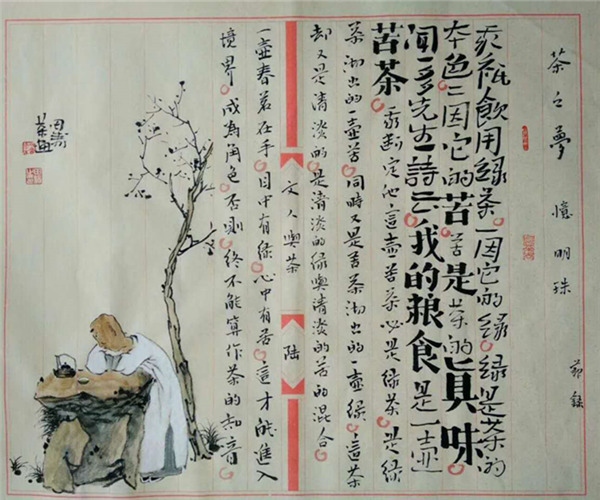 茶之夢 憶明珠
節錄
我祇飲用綠茶一因它的綠綠是茶的
本色二因它的苦苦是茶的真味
闻一多先生詩云我的粮食是一壶
苦茶我断定他這壶苦茶必是绿茶是绿
茶沏出的一壶苦同時又是苦茶沏出的一壶綠這茶
却又是清淡的是清淡的绿與清淡的苦的混合
文人與茶
陆
一壶春茗在手目中有绿心中有苦這才能進入
境界成為角色否則終不能算作茶的知音